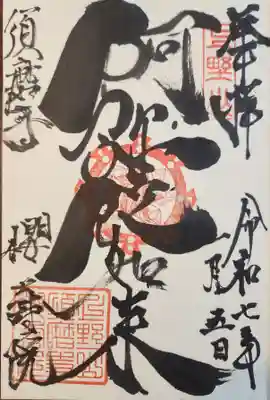 奉拝
令和七年
五日
阿弥陀如来
須磨寺
櫻壽院